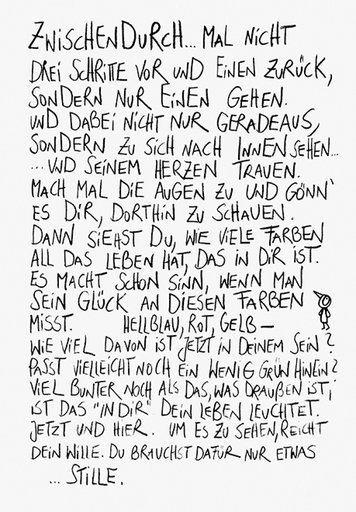 ZWISCHENDURCH... MAL NICHT
DREI SCHRITTE VOR UND EINEN ZURÜCK,
SONDERN NUR EINEN GEHEN.
UND DABEI NICHT NUR GERADEAUS,
SONDERN ZU SICH NACH INNEN SEHEN...
... UND SEINEM HERZEN TRAUEN.
MACH MAL DIE AUGEN ZU UND GÖNN'
ES DIR, DORTHIN ZU SCHAUEN.
DANN SIEHST DU, WIE VIELE FARBEN
ALL DAS LEBEN HAT, DAS IN DIR IST.
ES MACHT SCHON SINN, WENN MAN
SEIN GLÜCK AN DIESEN FARBEN
MISST. HELLBLAU, ROT, GELB –
WIE VIEL DAVON IST JETZT IN DEINEM SEIN?
PASST VIELLEICHT NOCH EIN WENIG GRÜN HINEIN?
VIEL BUNTER NOCH ALS DAS, WAS DRAUßEN IST,
IST DAS "IN DIR" DEIN LEBEN LEUCHTET.
JETZT UND HIER. UM ES ZU SEHEN, REICHT
DEIN WILLE. DU BRAUCHST DAFÜR NUR ETWAS
... STILLE.